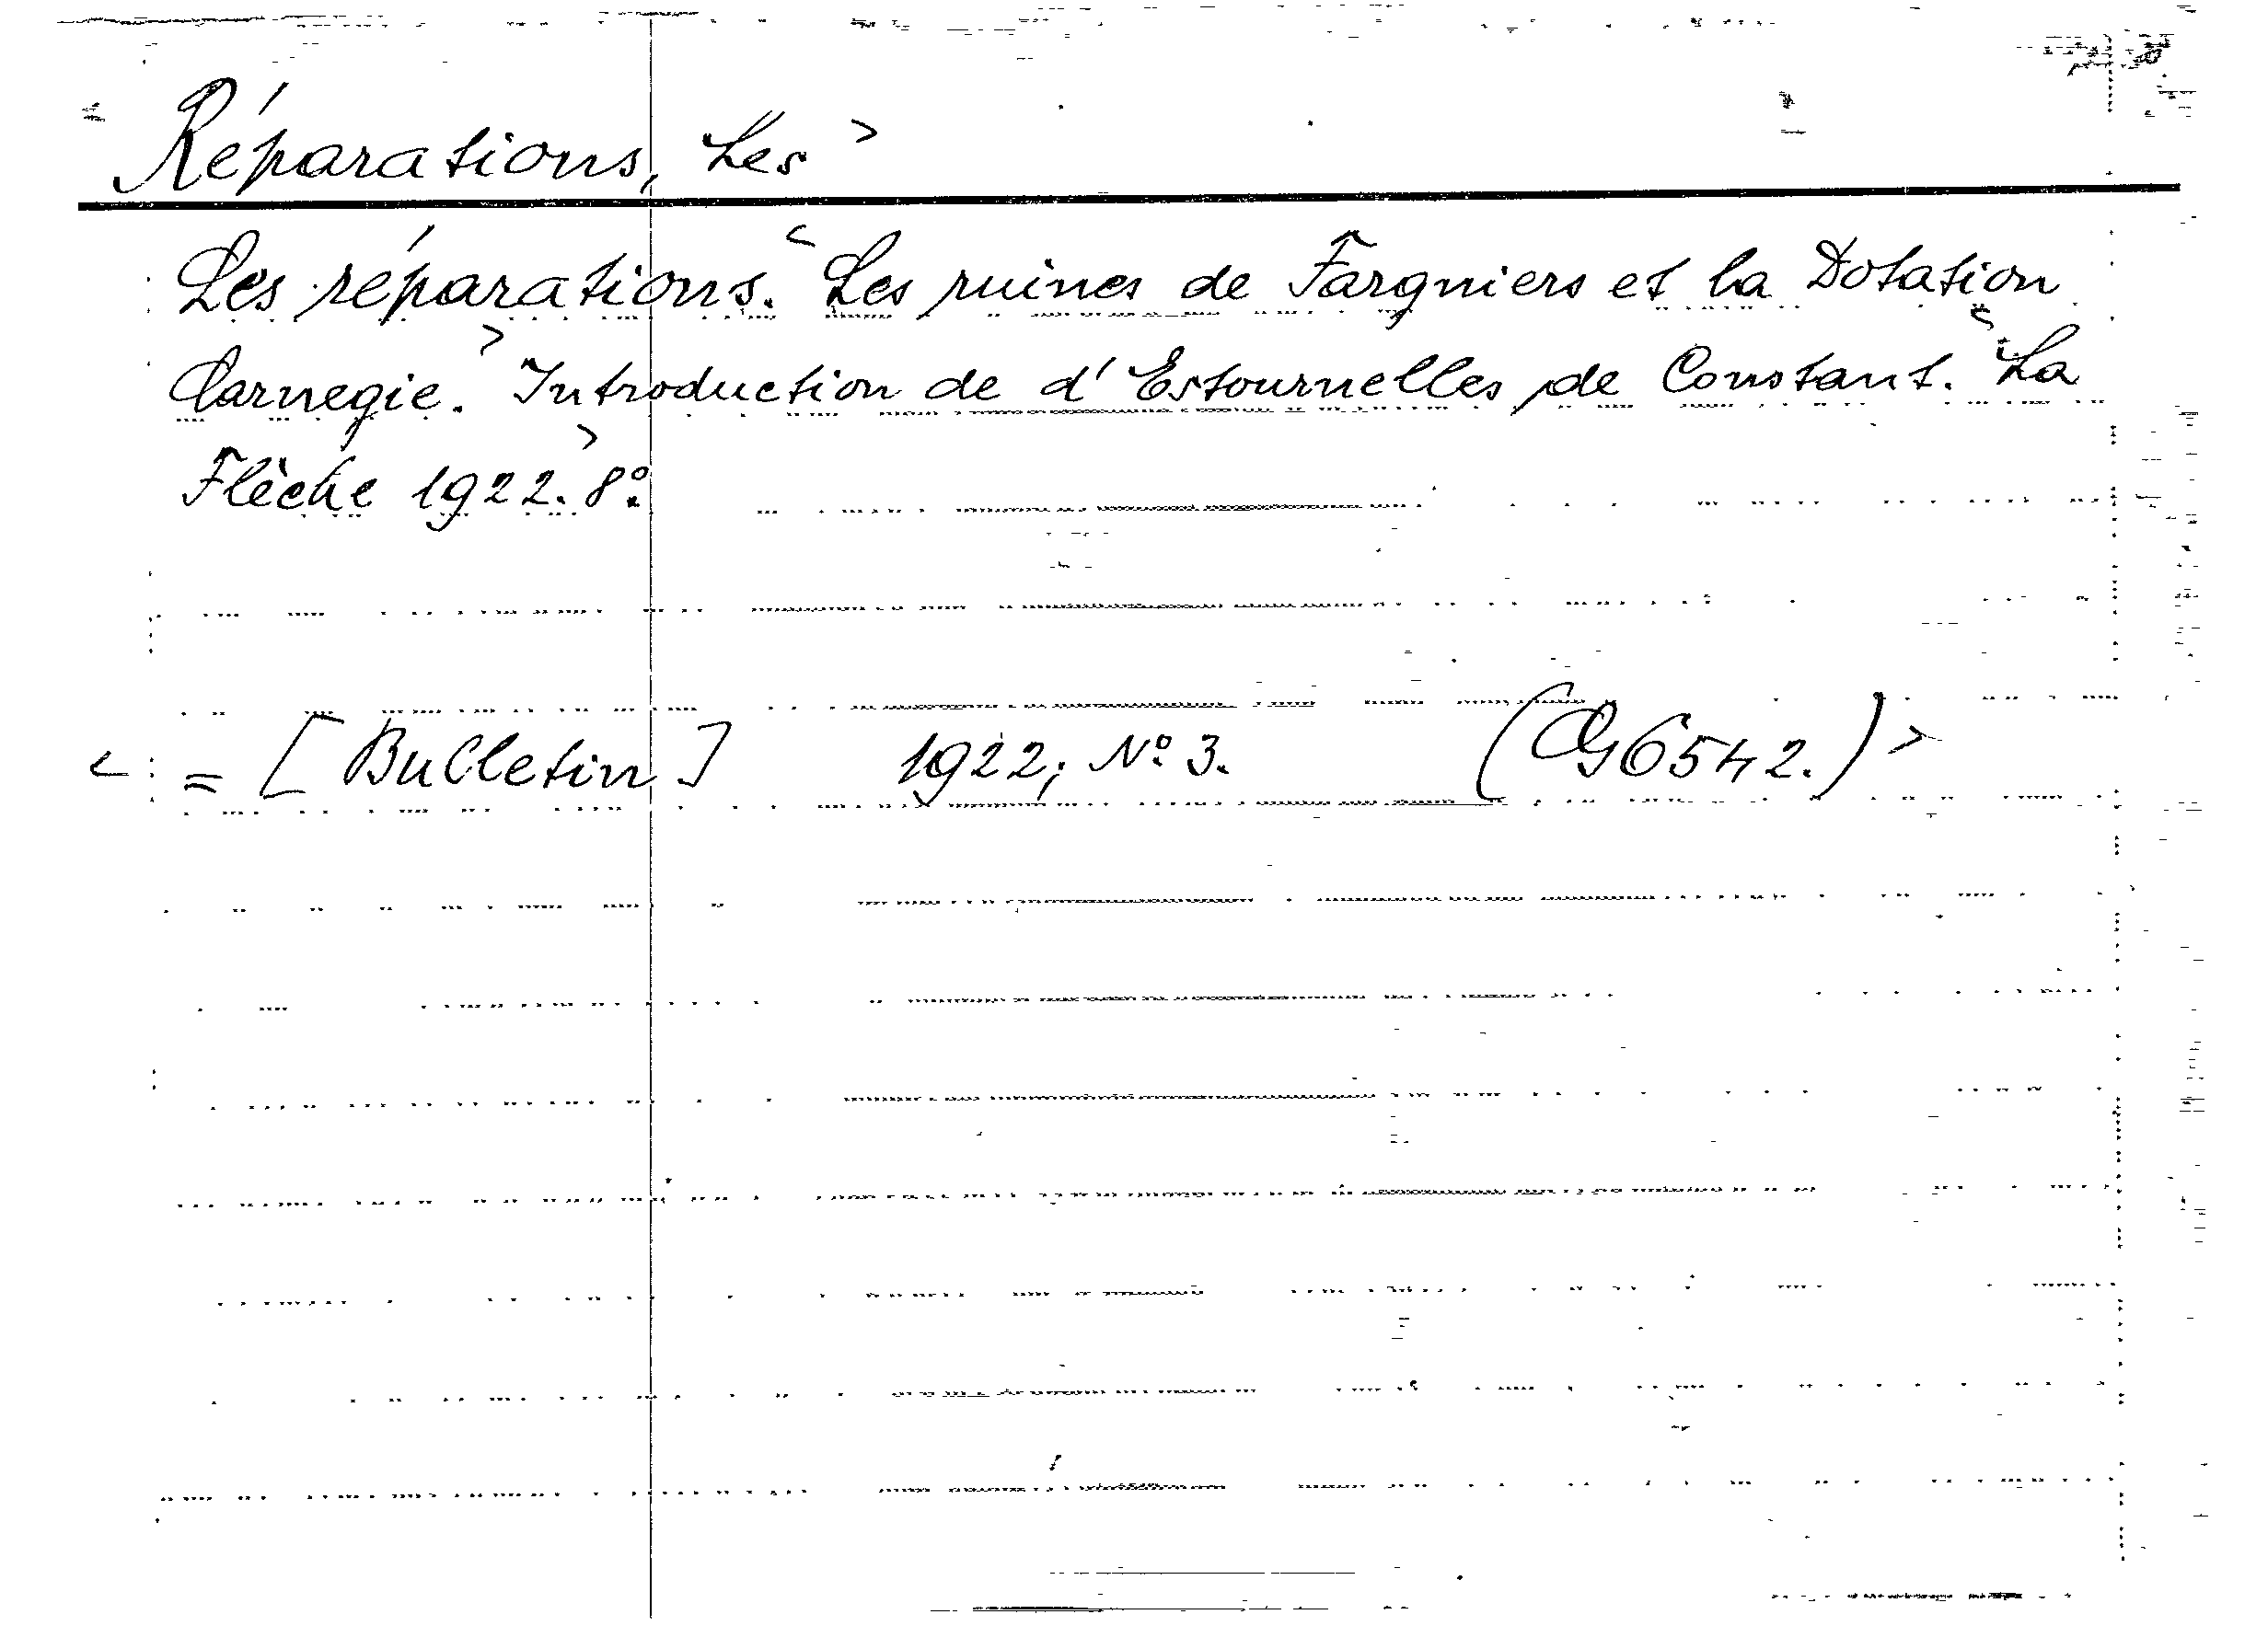 Réparations, Les >
Les réparations. < Les ruines de Fargniers et la Dotation
Carnegie. > Introduction de d'Estournelles de Constant. < La
Flèche 1922. > 8º.
< = [Bulletin] 1922; Nº 3. (OG6542.) >